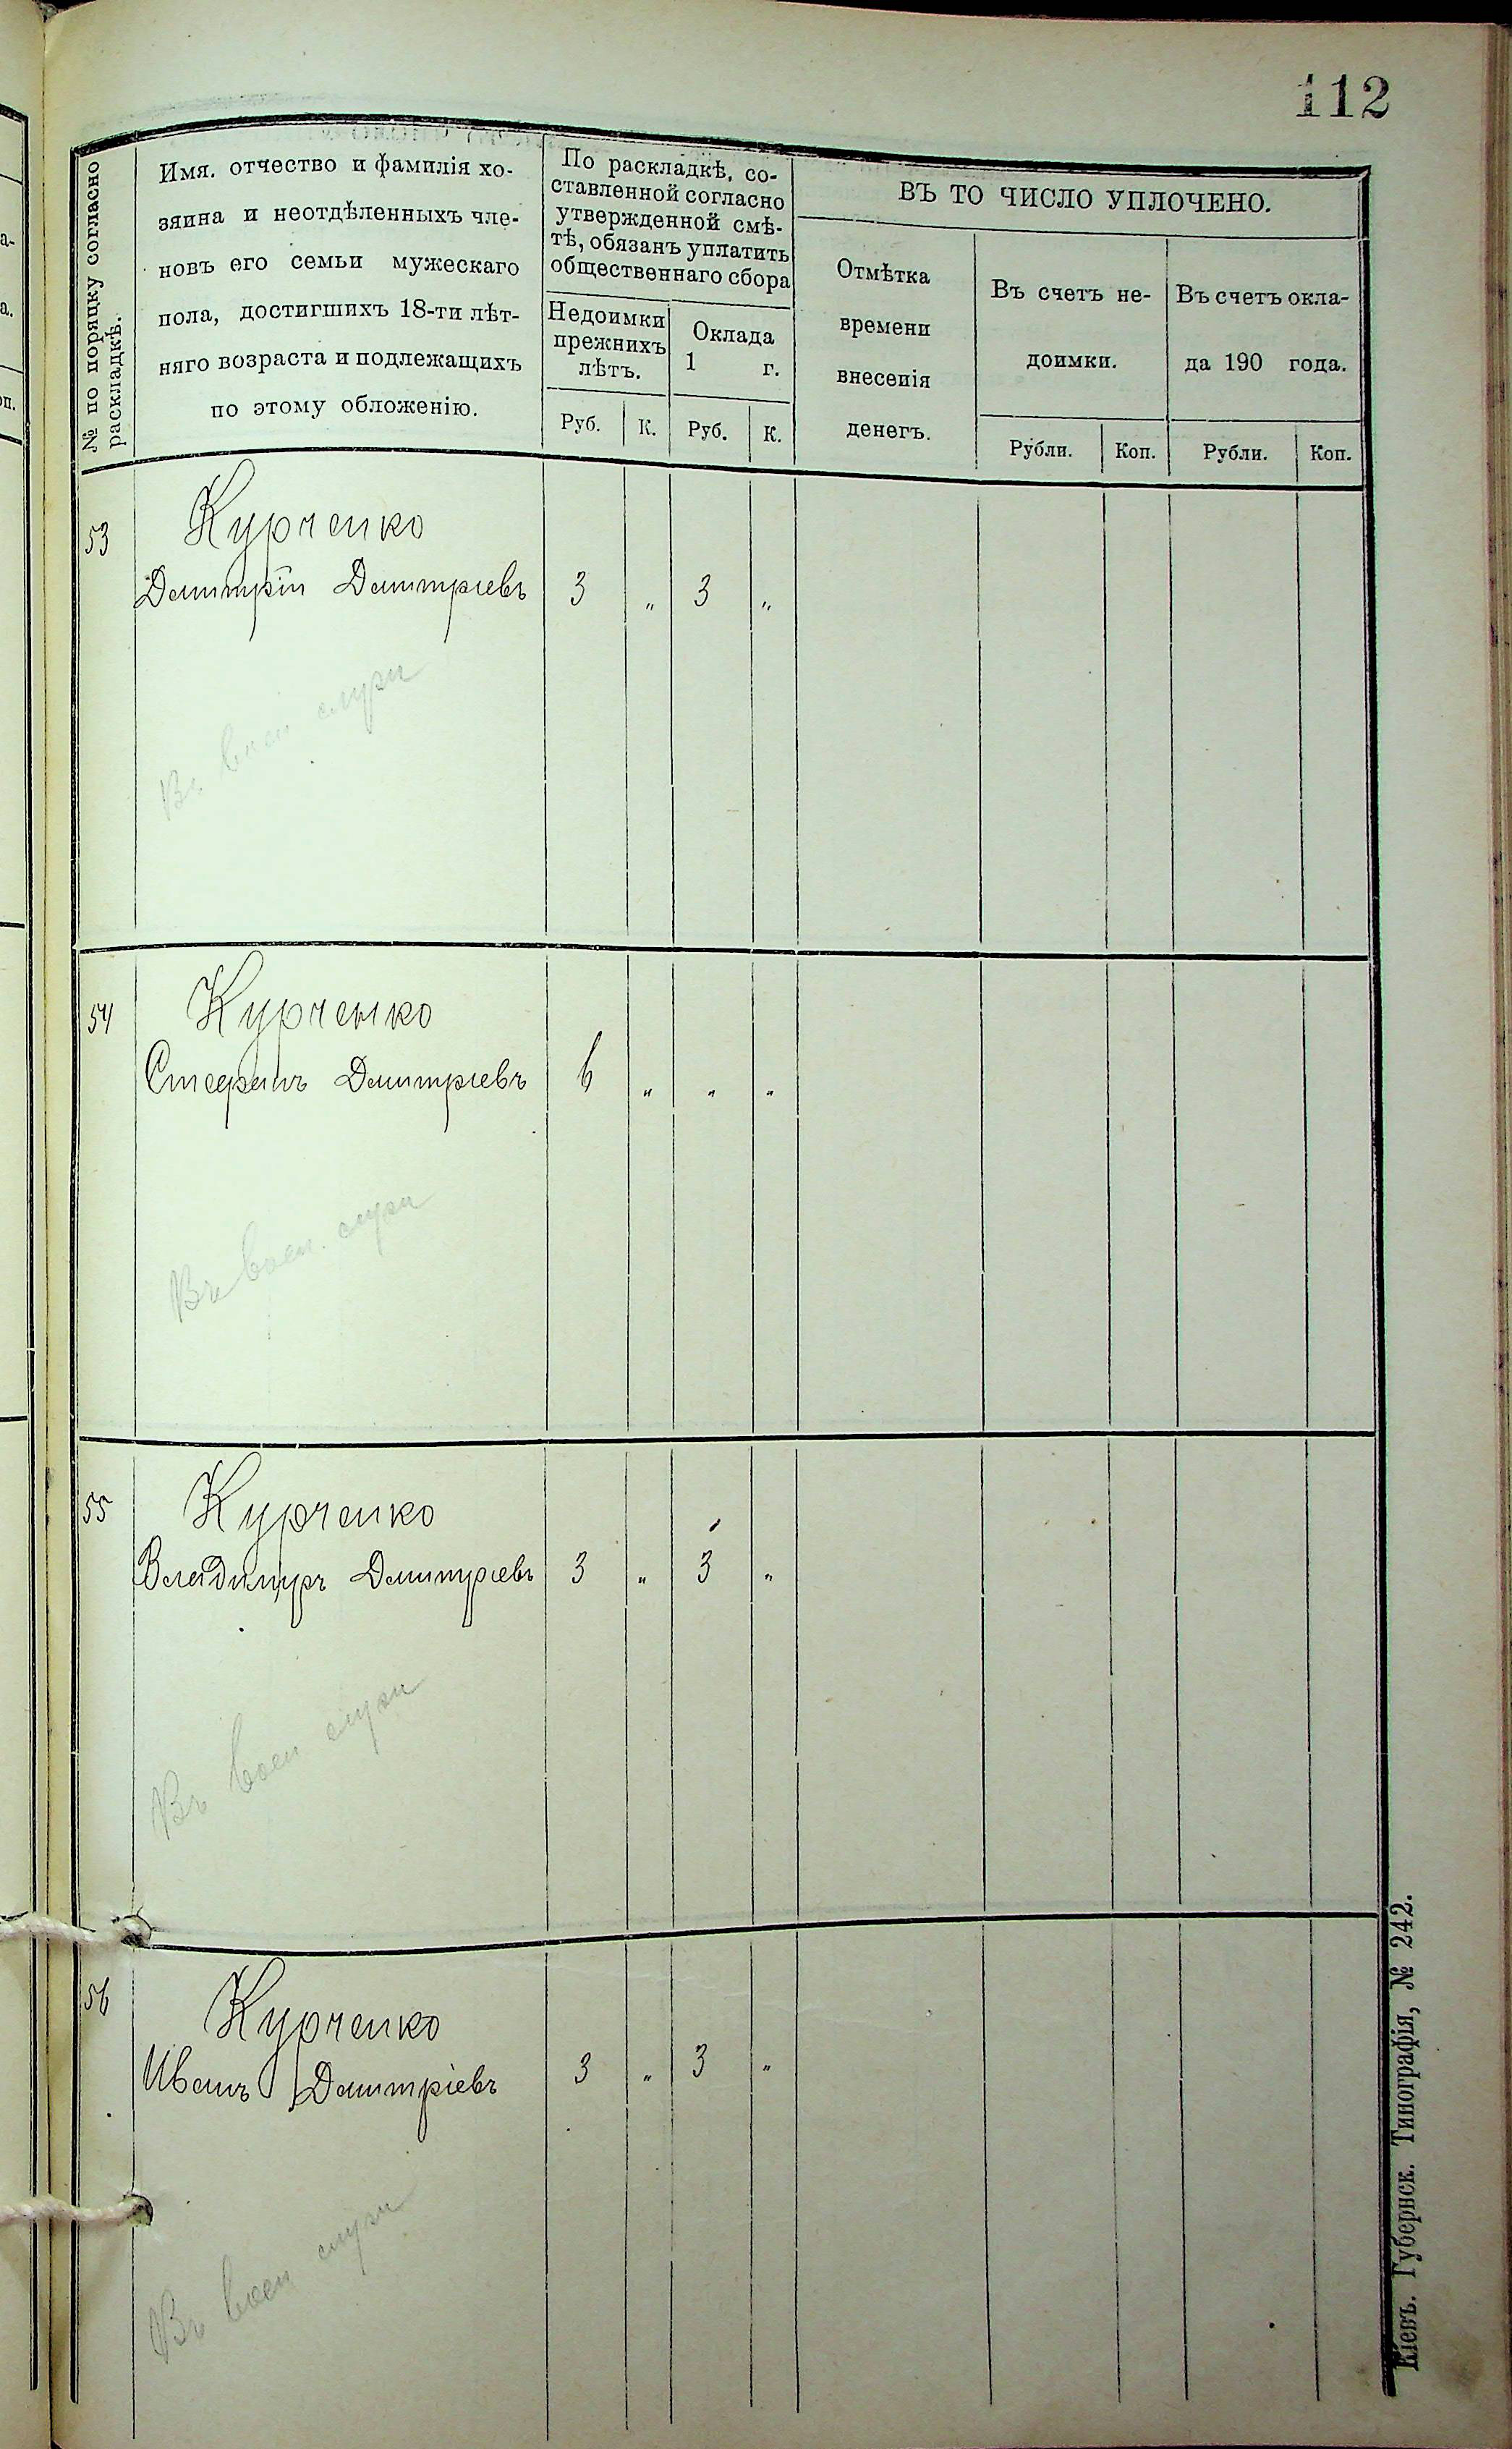 112
№ по порядку согласно
раскладкѣ.
Имя. отчество и фамилія хо-
зяина и неотдѣленныхъ чле-
новъ его семьи мужескаго
пола, достигшихъ 18-ти лѣт-
няго возраста и подлежащихъ
по этому обложенію.
По раскладкѣ, со-
ставленной согласно
утвержденной смѣ-
тѣ, обязанъ уплатить
общественнаго сбора
Недоимки
прежнихъ
лѣтъ.
Оклада
1 г.
Руб. К. Руб. К.
ВЪ ТО ЧИСЛО УПЛОЧЕНО.
Отмѣтка
времени
внесенія
денегъ.
Въ счетъ не-
доимки.
Въ счетъ окла-
да 190 года.
Рубли. Коп. Рубли. Коп.
53 Курченко
Дмитрій Дмитріевъ 3 „ 3 „
Въ воен служ
54 Курченко
Стефанъ Дмитріевъ 6 „ „ „
Въ воен. служ
55 Курченко
Владимиръ Дмитріевъ 3 „ 3 „
Въ воен служ
56 Курченко
Иванъ Дмитріевъ 3 „ 3 „
Въ воен служ
Кіевъ. Губернск. Типографія, № 242.